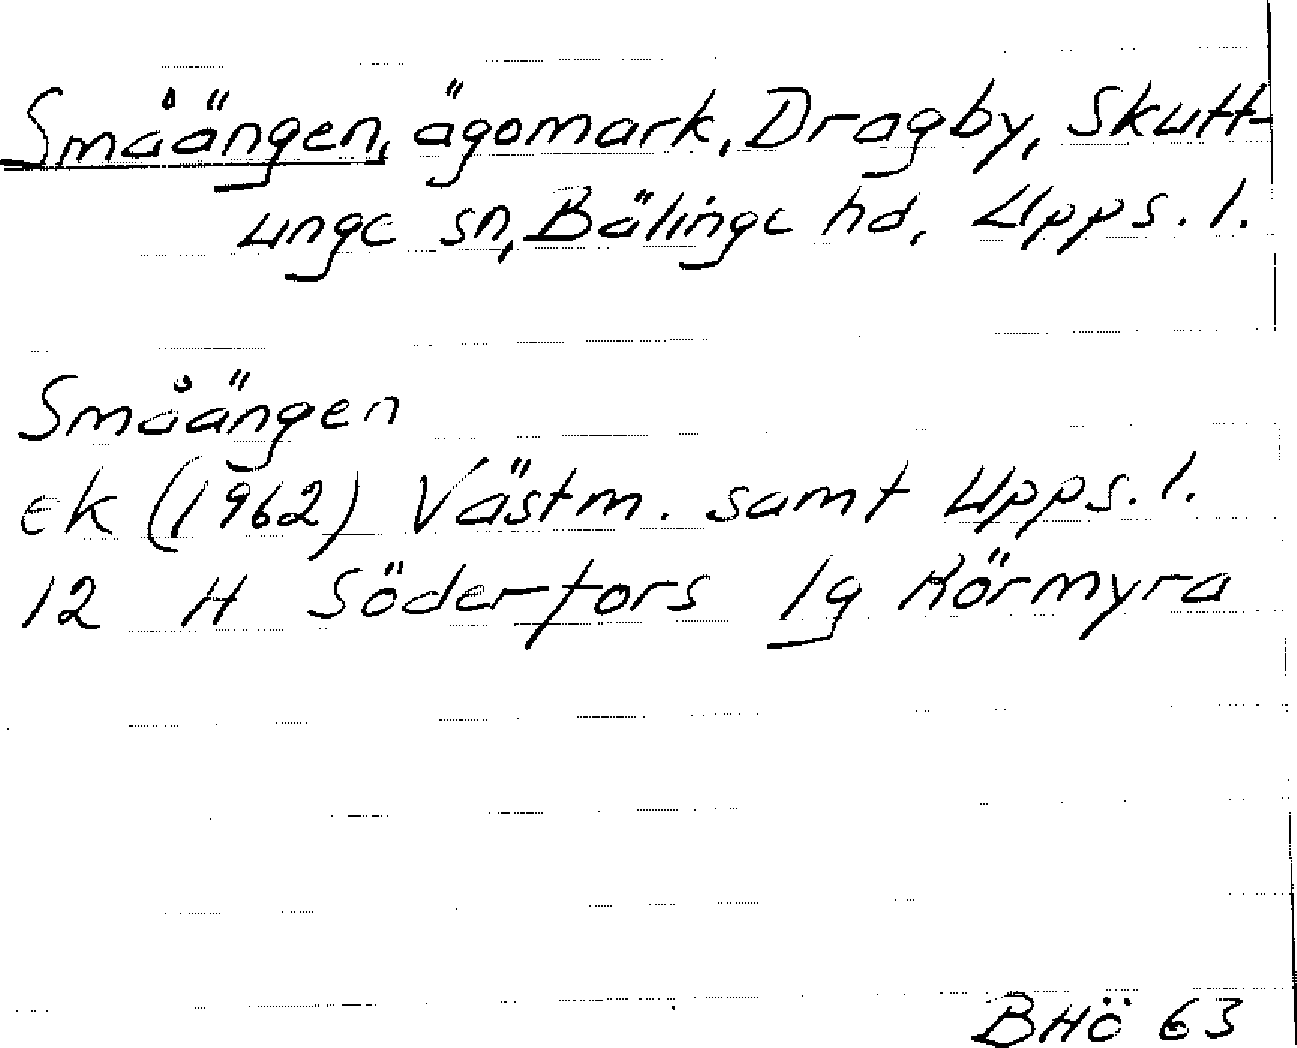 Småängen, ägomark, Dragby, Skutt-
unge sn, Bälinge hd, Upps. l.
Småängen
ek (1962) Västm. samt Upps. l.
12 H Söderfors 1g Körmyra
BHÖ 63